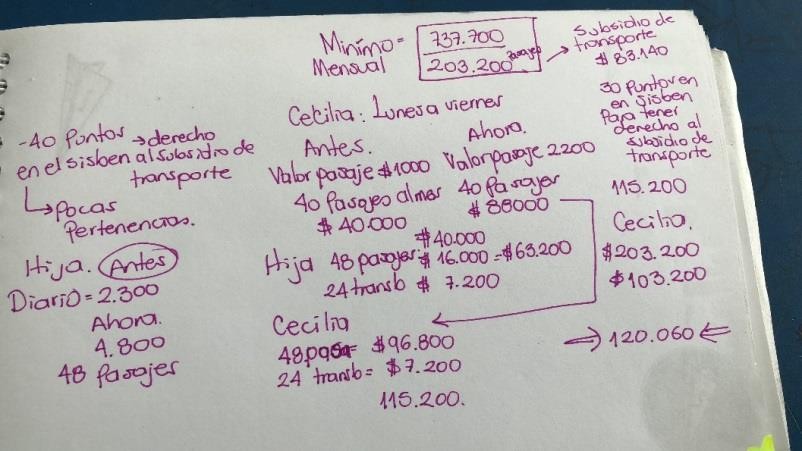 Minímo = 737.700
Mensual 203.200 Pasajes
Subsidio de
transporte
$ 83.140
30 Puntos en
en sisben
Para tener
derecho al
subsidio de
transporte
115.200
Cecilia.
$203.200
$103.200
⇒ 120.060 ⇐
-40 Puntos → derecho
en el sisben al subsidio de
transporte
↳ Pocas
Pertenencias.
Hija. Antes
Diario = 2.300
Ahora.
4.800
48 Pasajes
Cecilia: Lunes a viernes
Antes.
Valor pasaje $1000
40 Pasajes al mes
$ 40.000
Ahora.
Valor pasaje 2200
40 Pasajes
$ 88000
$40.000
Hija 48 pasajes $ 16.000 = $63.200
24 transb $ 7.200
Cecilia
48 pasa = $96.800
24 transb = $7.200
115.200.